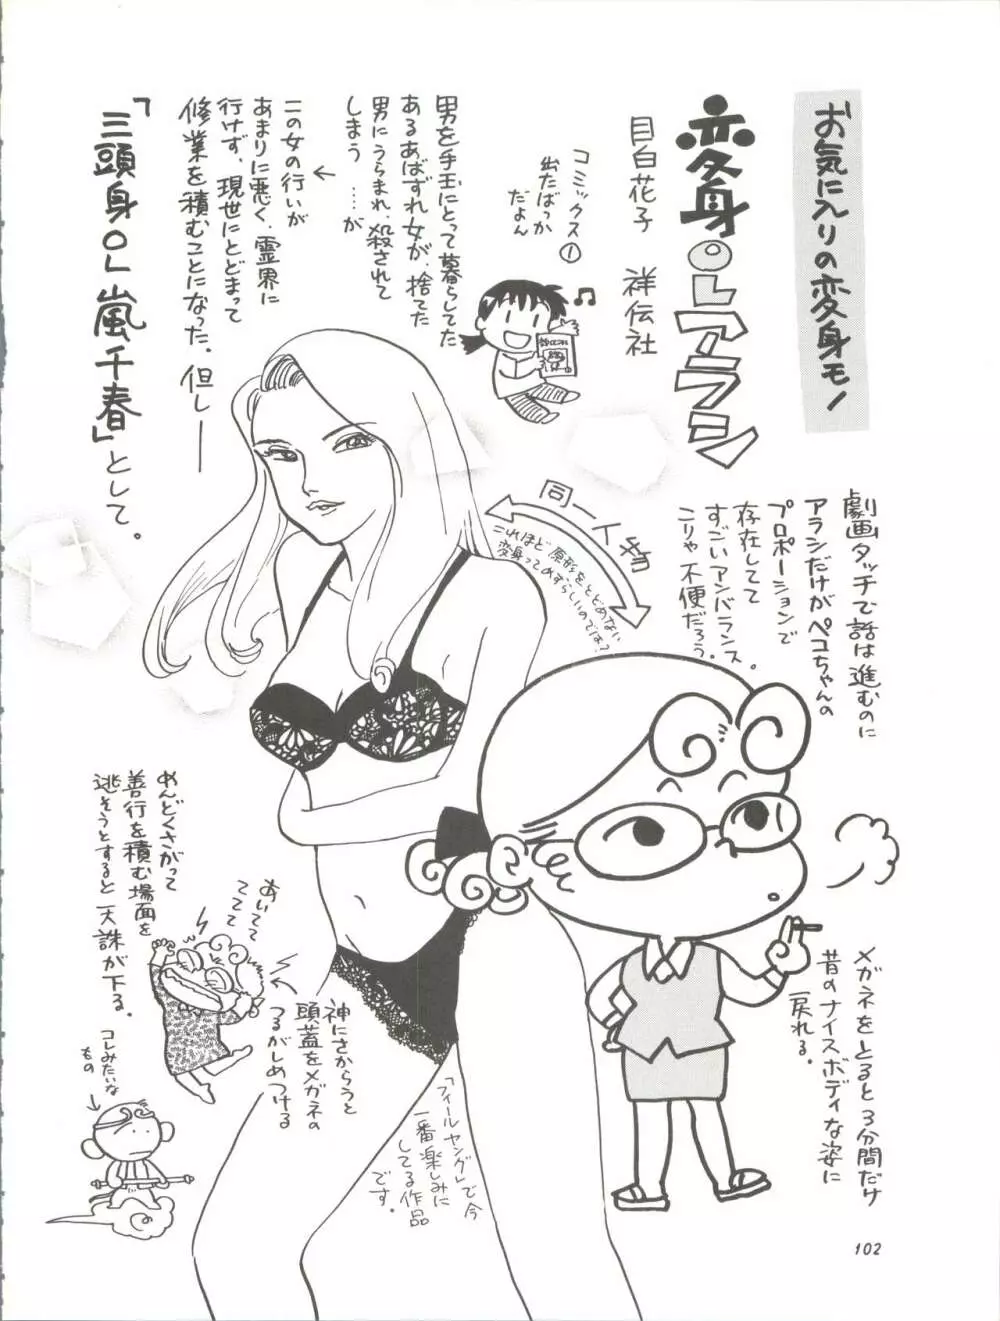 お気に入りの変身モノ
変身OLアラシ
目白花子　祥伝社
コミックス①
出たばっか
だよん
♫
男を手玉にとって暮らしてた
あるあばずれ女が、捨てた
男にうらまれ、殺されて
しまう……が
↓
この女の行いが
あまりに悪く、霊界に
行けず、現世にとどまって
修業を積むことになった。但し――
「三頭身OL嵐千春」として。
劇画タッチで話は進むのに
アラシだけがペコちゃんの
プロポーションで
存在してて
すごいアンバランス。
こりゃ不便だろう。
同一人物
これほど原形をとどめない
変身ってめずらしいのでは？
メガネをとると3分間だけ
昔のナイスボディな姿に
戻れる。
めんどくさがって
善行を積む場面を
逃そうとすると天誅が下る。
あいててて
ててて
神にさからうと
頭蓋をメガネの
つるがしめつける
コレみたいな
もの
「フィールヤング」で今
一番楽しみに
してる作品
です。
102